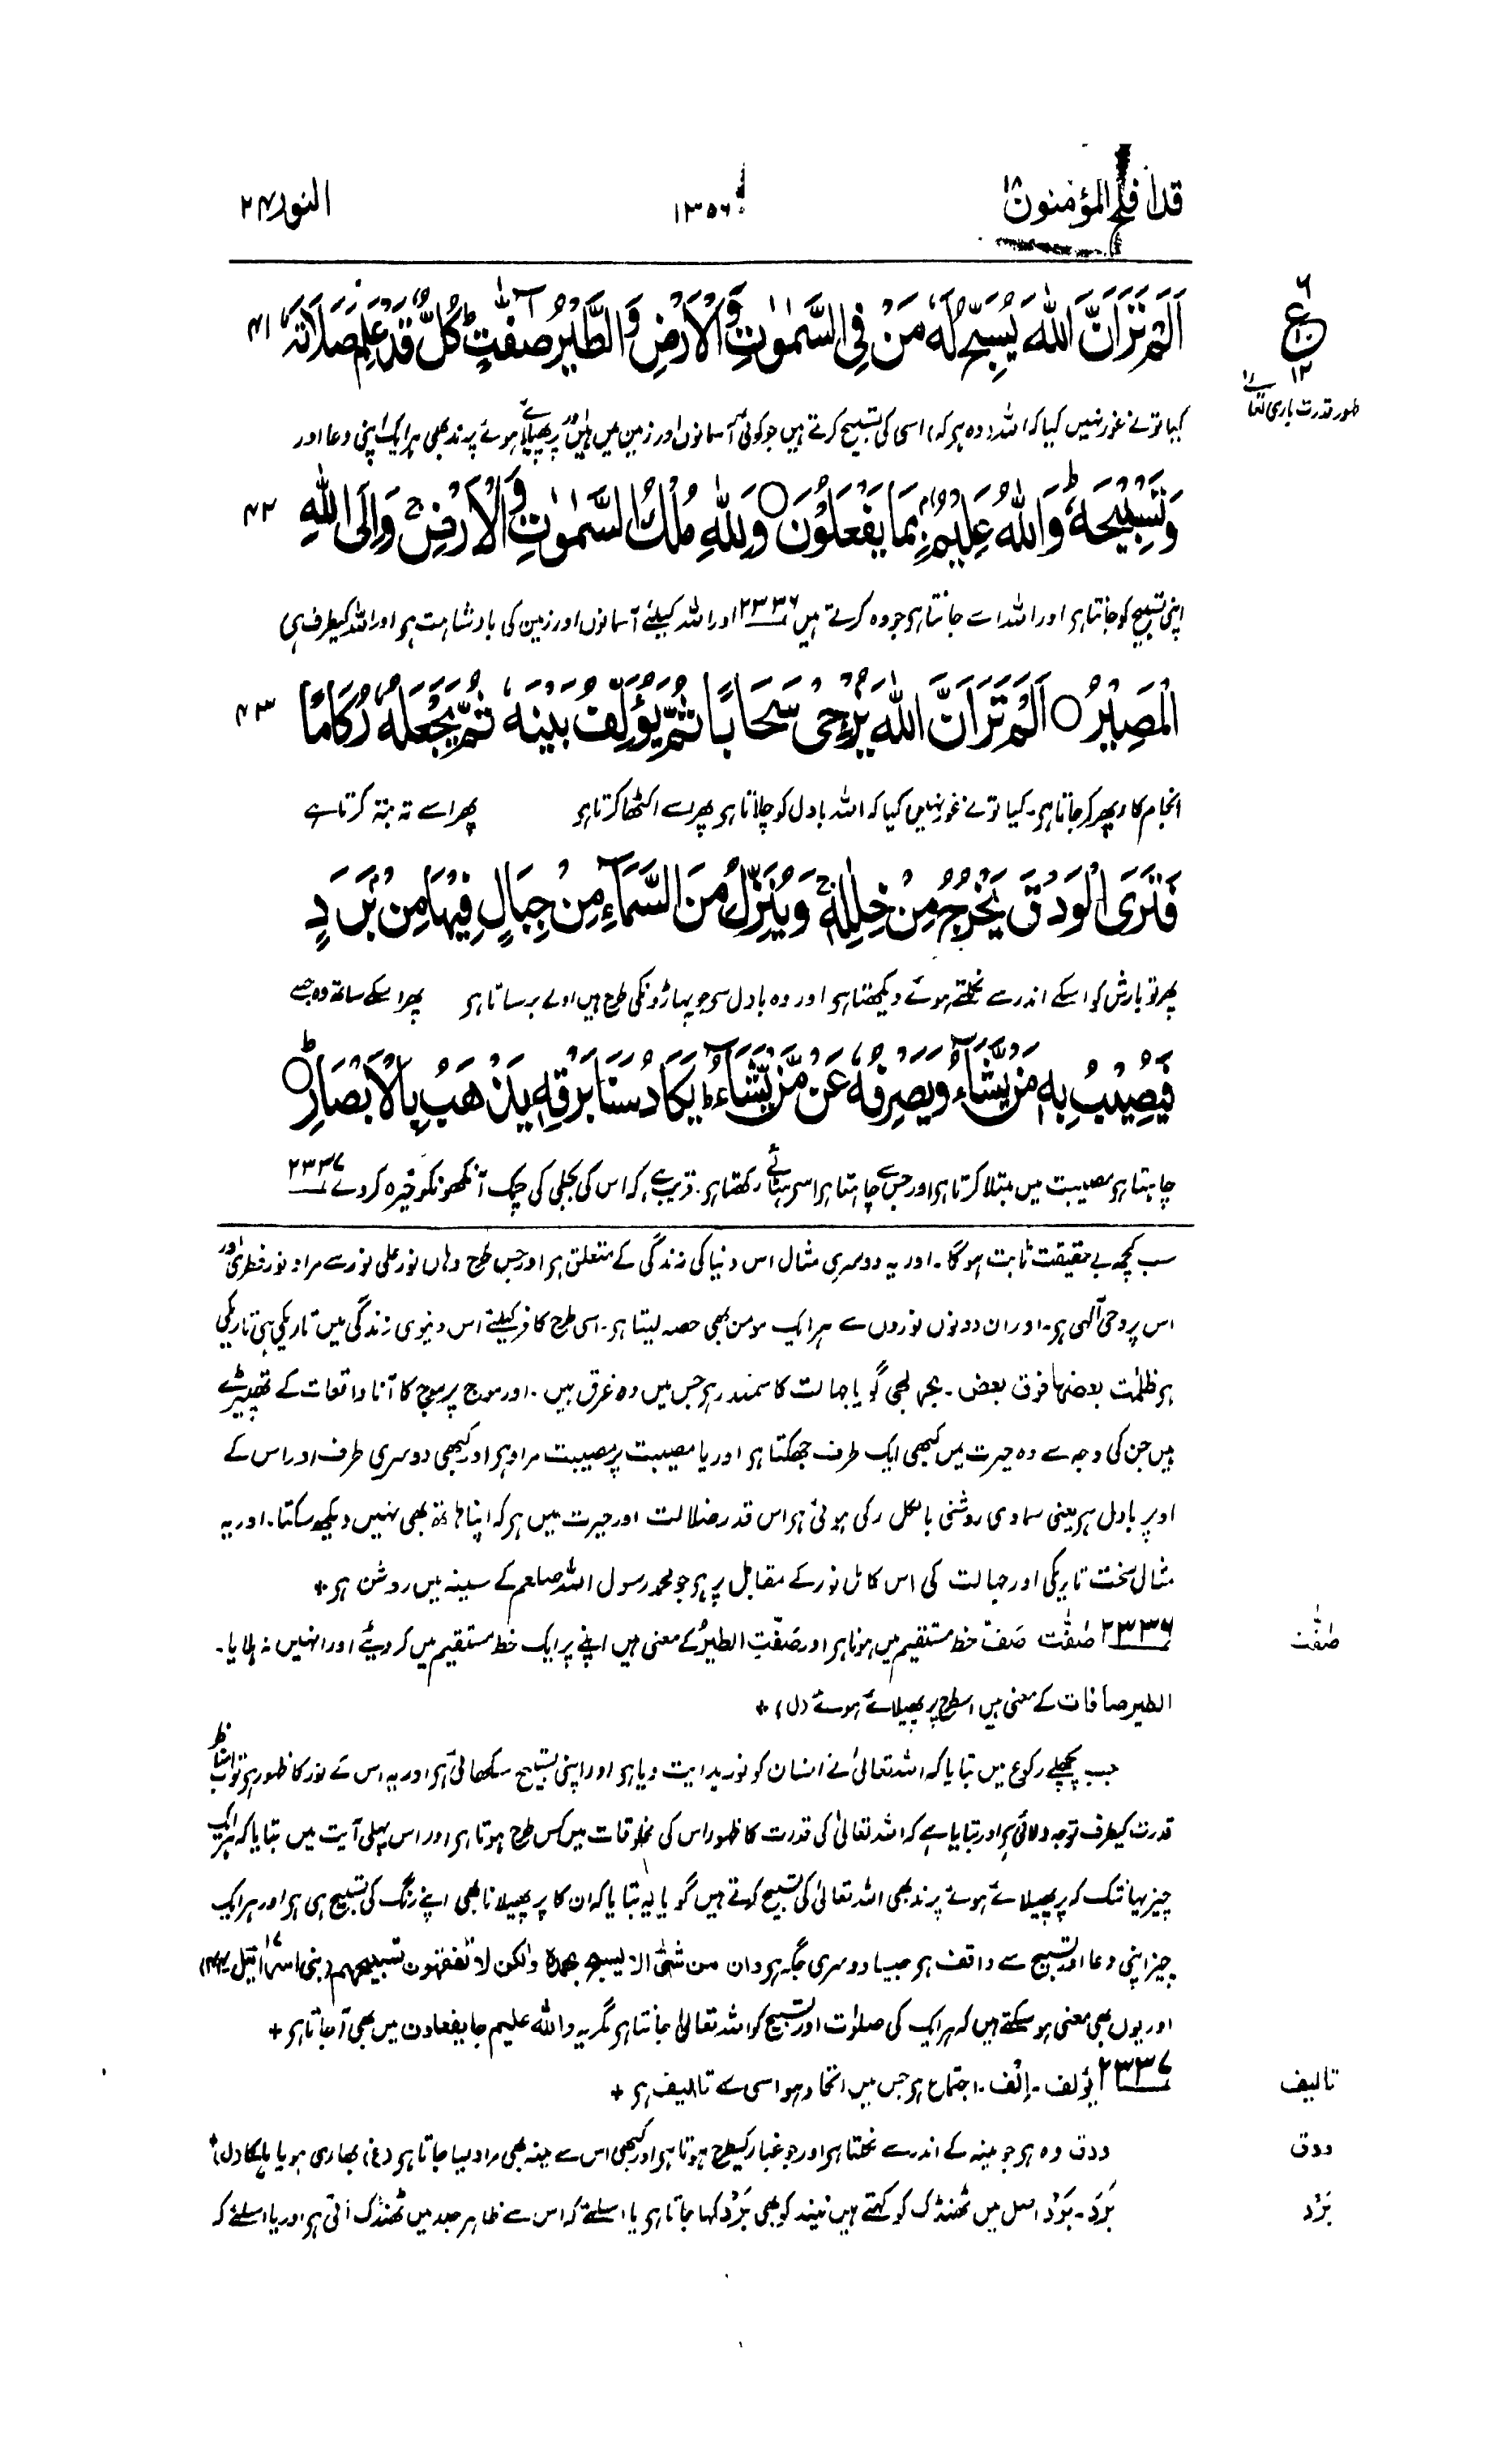 قد افلح المؤمنون ١٨
١٣٥٦
النور ٢٤
٦
ع
١٢
ظہور قدرت باری تعالےٰ
اَلَمْ تَرَ اَنَّ اللّٰهَ يُسَبِّحُ لَهٗ مَنْ فِى السَّمٰوٰتِ وَالْاَرْضِ وَالطَّيْرُ صٰٓفّٰتٍ ؕ كُلٌّ قَدْ عَلِمَ صَلَاتَهٗ ٤١
کیا تو نے غور نہیں کیا کہ اللہ (وہ ہو کہ) اسی کی تسبیح کرتے ہیں جو کوئی آسمانوں اور زمین میں ہیں اور پر پھیلائے ہوئے پرند بھی ہر ایک اپنی دعا اور
وَتَسْبِيْحَهٗ ؕ وَاللّٰهُ عَلِيْمٌۢ بِمَا يَفْعَلُوْنَ ○ وَلِلّٰهِ مُلْكُ السَّمٰوٰتِ وَالْاَرْضِ ۚ وَاِلَى اللّٰهِ ٤٢
اپنی تسبیح کو جانتا ہو اور اللہ اسے جانتا ہو جو وہ کرتے ہیں ٢٣٣٦ اور اللہ کیلئے آسمانوں اور زمین کی بادشاہت ہو اور اللہ کیطرف ہی
الْمَصِيْرُ ○ اَلَمْ تَرَ اَنَّ اللّٰهَ يُزْجِىْ سَحَابًا ثُمَّ يُؤَلِّفُ بَيْنَهٗ ثُمَّ يَجْعَلُهٗ رُكَامًا ٤٣
انجام کار پھر کر جانا ہو۔ کیا تو نے غور نہیں کیا کہ اللہ بادل کو چلاتا ہو پھر اسے اکٹھا کرتا ہو پھر اسے تہ بتہ کرتا ہے
فَتَرَى الْوَدْقَ يَخْرُجُ مِنْ خِلٰلِهٖ ۚ وَيُنَزِّلُ مِنَ السَّمَآءِ مِنْ جِبَالٍ فِيْهَا مِنْۢ بَرَدٍ
پھر تو بارش کو اسکے اندر سے نکلتے ہوئے دیکھتا ہو اور وہ بادل سے جو پہاڑونکی طرح ہیں اولے برساتا ہو پھر اسکے ساتھ وہ جسے
فَيُصِيْبُ بِهٖ مَنْ يَّشَآءُ وَيَصْرِفُهٗ عَنْ مَّنْ يَّشَآءُ ؕ يَكَادُ سَنَا بَرْقِهٖ يَذْهَبُ بِالْاَبْصَارِ ○ؕ
چاہتا ہو مصیبت میں مبتلا کرتا ہو اور جس سے چاہتا ہو اسے ہٹائے رکھتا ہو۔ قریب ہے کہ اس کی بجلی کی چمک آنکھونکو خیرہ کر دے ٢٣٣٧
سب کچھ بے حقیقت ثابت ہوگا۔ اور یہ دوسری مثال اس دنیا کی زندگی کے متعلق ہو اور جس طرح وہاں نور علیٰ نور سے مراد نور فطری اور
اس پر وحی الٰہی ہو۔ اور ان دونوں نوروں سے ہر ایک مومن بھی حصہ لیتا ہو۔ اسی طرح کافر کیلئے اس دنیوی زندگی میں تاریکی ہی تاریکی
ہو ظلمٰت بعضہا فوق بعض۔ بحر لجی گویا جہالت کا سمندر ہو جس میں وہ غرق ہیں۔ اور موج پر موج کا آنا واقعات کے تھپیڑے
ہیں جن کی وجہ سے وہ حیرت میں کبھی ایک طرف جھکتا ہو اور یا مصیبت پر مصیبت مراد ہو اور کبھی دوسری طرف اور اس کے
اوپر بادل ہو یعنی سماوی روشنی بالکل رکی ہوئی ہو اس قدر ضلالت اور حیرت میں ہو کہ اپنا ہاتھ بھی نہیں دیکھ سکتا۔ اور یہ
مثال سخت تاریکی اور جہالت کی اس کامل نور کے مقابل پر ہو جو محمد رسول اللہ صلعم کے سینہ میں روشن ہو +
صٰفّٰت
٢٣٣٦ صٰفّٰت صَفّ خط مستقیم میں ہونا ہو اور صَفَّتِ الطیرُ کے معنی ہیں اپنے پر ایک خط مستقیم میں کر دیئے اور انہیں نہ ہلایا۔
الطیر صافات کے معنی ہیں اسطرح پر پھیلائے ہوئے (ل) +
جب پچھلے رکوع میں بتایا کہ اللہ تعالیٰ نے انسان کو نور ہدایت دیا ہو اور اپنی تسبیح سکھائی ہو اور یہ اس کے نور کا ظہور ہو تو اب اپنا
قدرت کیطرف توجہ دلائی ہو اور بتایا ہے کہ اللہ تعالیٰ کی قدرت کا ظہور اس کی مخلوقات میں کس طرح ہوتا ہو اور اس پہلی آیت میں بتایا کہ ہر ایک
چیز یہانتک کہ پر پھیلائے ہوئے پرند بھی اللہ تعالیٰ کی تسبیح کرتے ہیں گویا یہ بتایا کہ ان کا پر پھیلانا بھی اپنے رنگ کی تسبیح ہی ہو اور ہر ایک
چیز اپنی دعا اور تسبیح سے واقف ہو جیسا دوسری جگہ ہو وان من شیٔ الا یسبح بحمدہ ولکن لا تفقہون تسبیحہم (بنی اسرائیل ١٧ ۔ ٤٤)
اور یوں بھی معنی ہو سکتے ہیں کہ ہر ایک کی صلوٰت اور تسبیح کو اللہ تعالیٰ جانتا ہو مگر یہ واللّٰہ علیم بما یفعلون میں بھی آجاتا ہو +
تالیف
٢٣٣٧ یؤلف۔ اِلْف۔ اجتماع ہو جس میں اتحاد ہو اسی سے تالیف ہو +
ودق
ودق وہ ہو جو مینہ کے اندر سے نکلتا ہو اور جو غبار کیطرح ہوتا ہو اور کبھی اس سے مینہ بھی مراد لیا جاتا ہو (غ) بھاری ہو یا ہلکا (ل) +
بَرْد
بَرَد۔ بَرْد اصل میں ٹھنڈک کو کہتے ہیں نیند کو بھی بَرْد کہا جاتا ہو یا اسلئے کہ اس سے ظاہر جلد میں ٹھنڈک آتی ہو اور یا اسلئے کہ